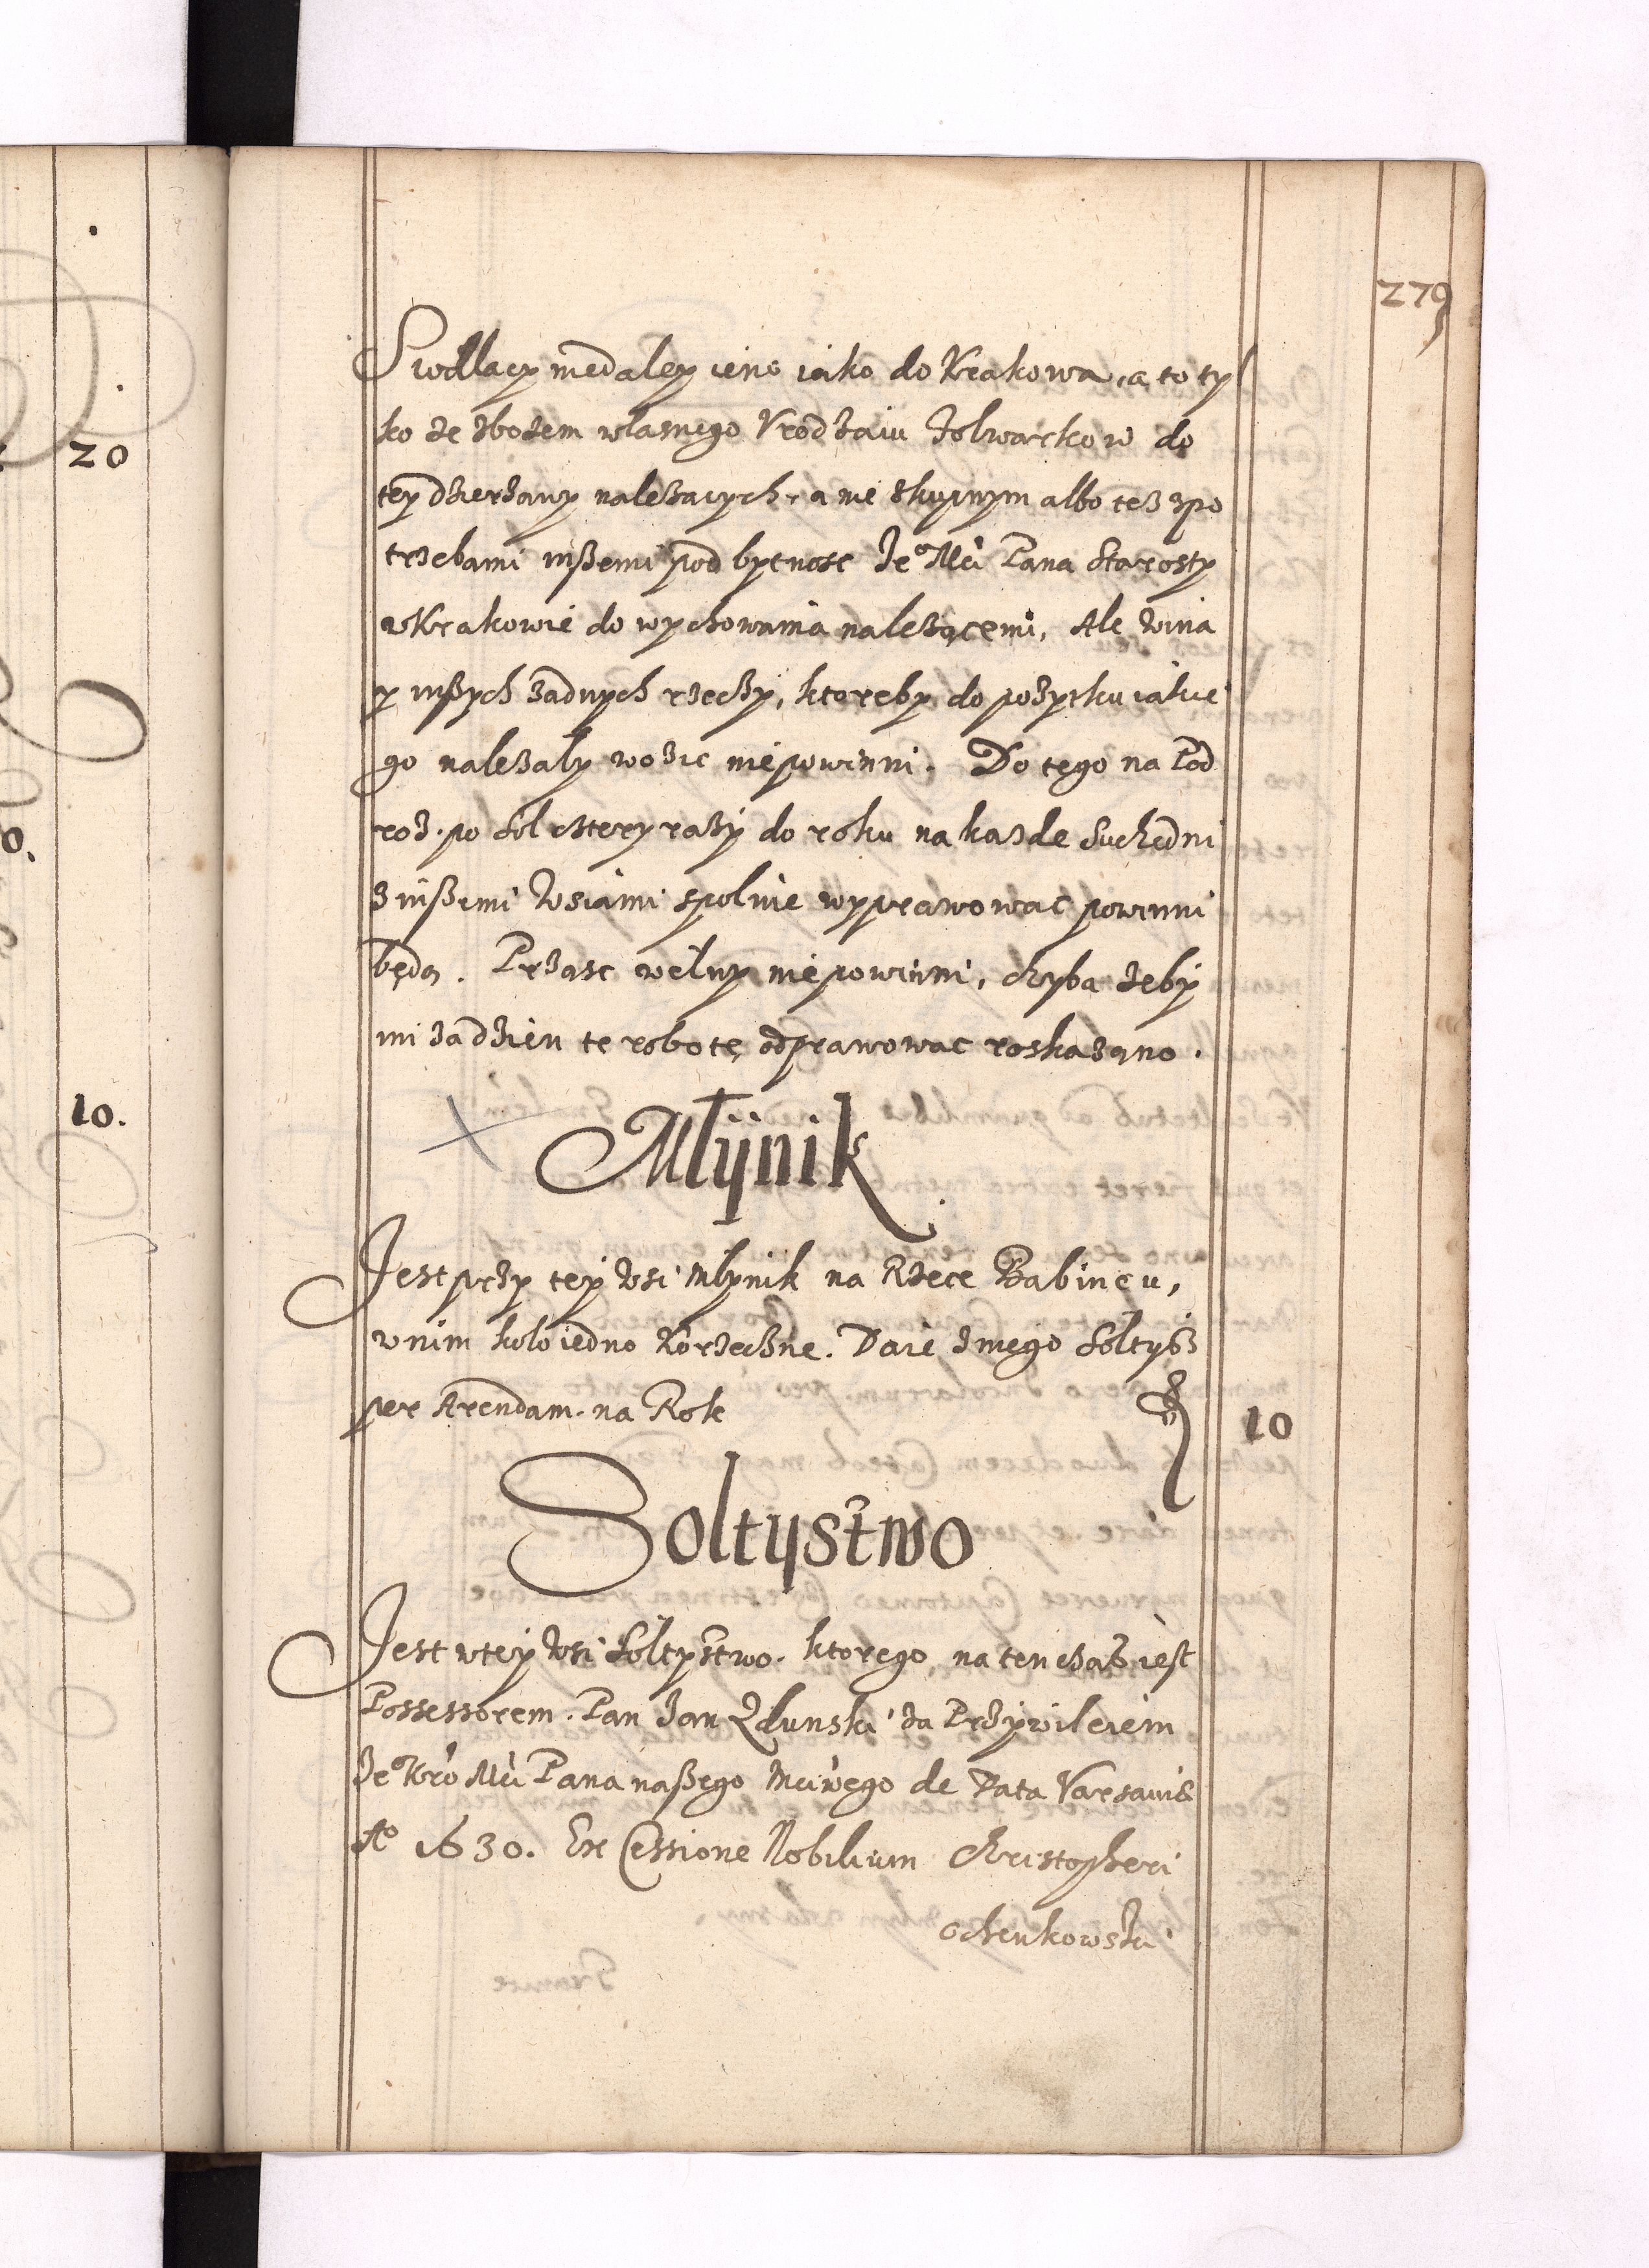 279
Siodłacy niedaley ieno iako do Krakowa, a to tyl
ko ze zbozem własnego Vrodzaiu folwarkow do
tey dzierzawy nalezacych, a nie skupnym albo tez zpo
trzebami inßemi pod bytnosc Je° Mći Pana Starosty
w Krakowie do wychowania nalezącemi, Ale wina
y inßych zadnych rzeczy, ktoreby do pozytku iakie
go nalezały wozic niepowinni. Do tego na Pod
roz. po Sol cztery razy do roku na kazde Suchedni
z inßemi wsiami spolnie wyprawowac powinni
będą. Prząsc wełny niepowinni, chyba zeby
im za dzien te robotę odprawowac roskazano.
Młynik
Jest przy tey wsi Młynik na Rzece Babincu,
w nim koło iedno Korzeczne. Daie z niego Sołtyß
per Arendam. na Rok
10
Sołtystwo
Jest w tey wsi Sołtystwo. ktorego na ten czas iest
Possessorem. Pan Jan Zdunski za Przywileiem
Je° Kro Mći Pana naßego Mciwego de Data Varsauiæ
A° 1630. Ex Cessione Nobilium Christopheri
Ochenkowski
20
0.
10.